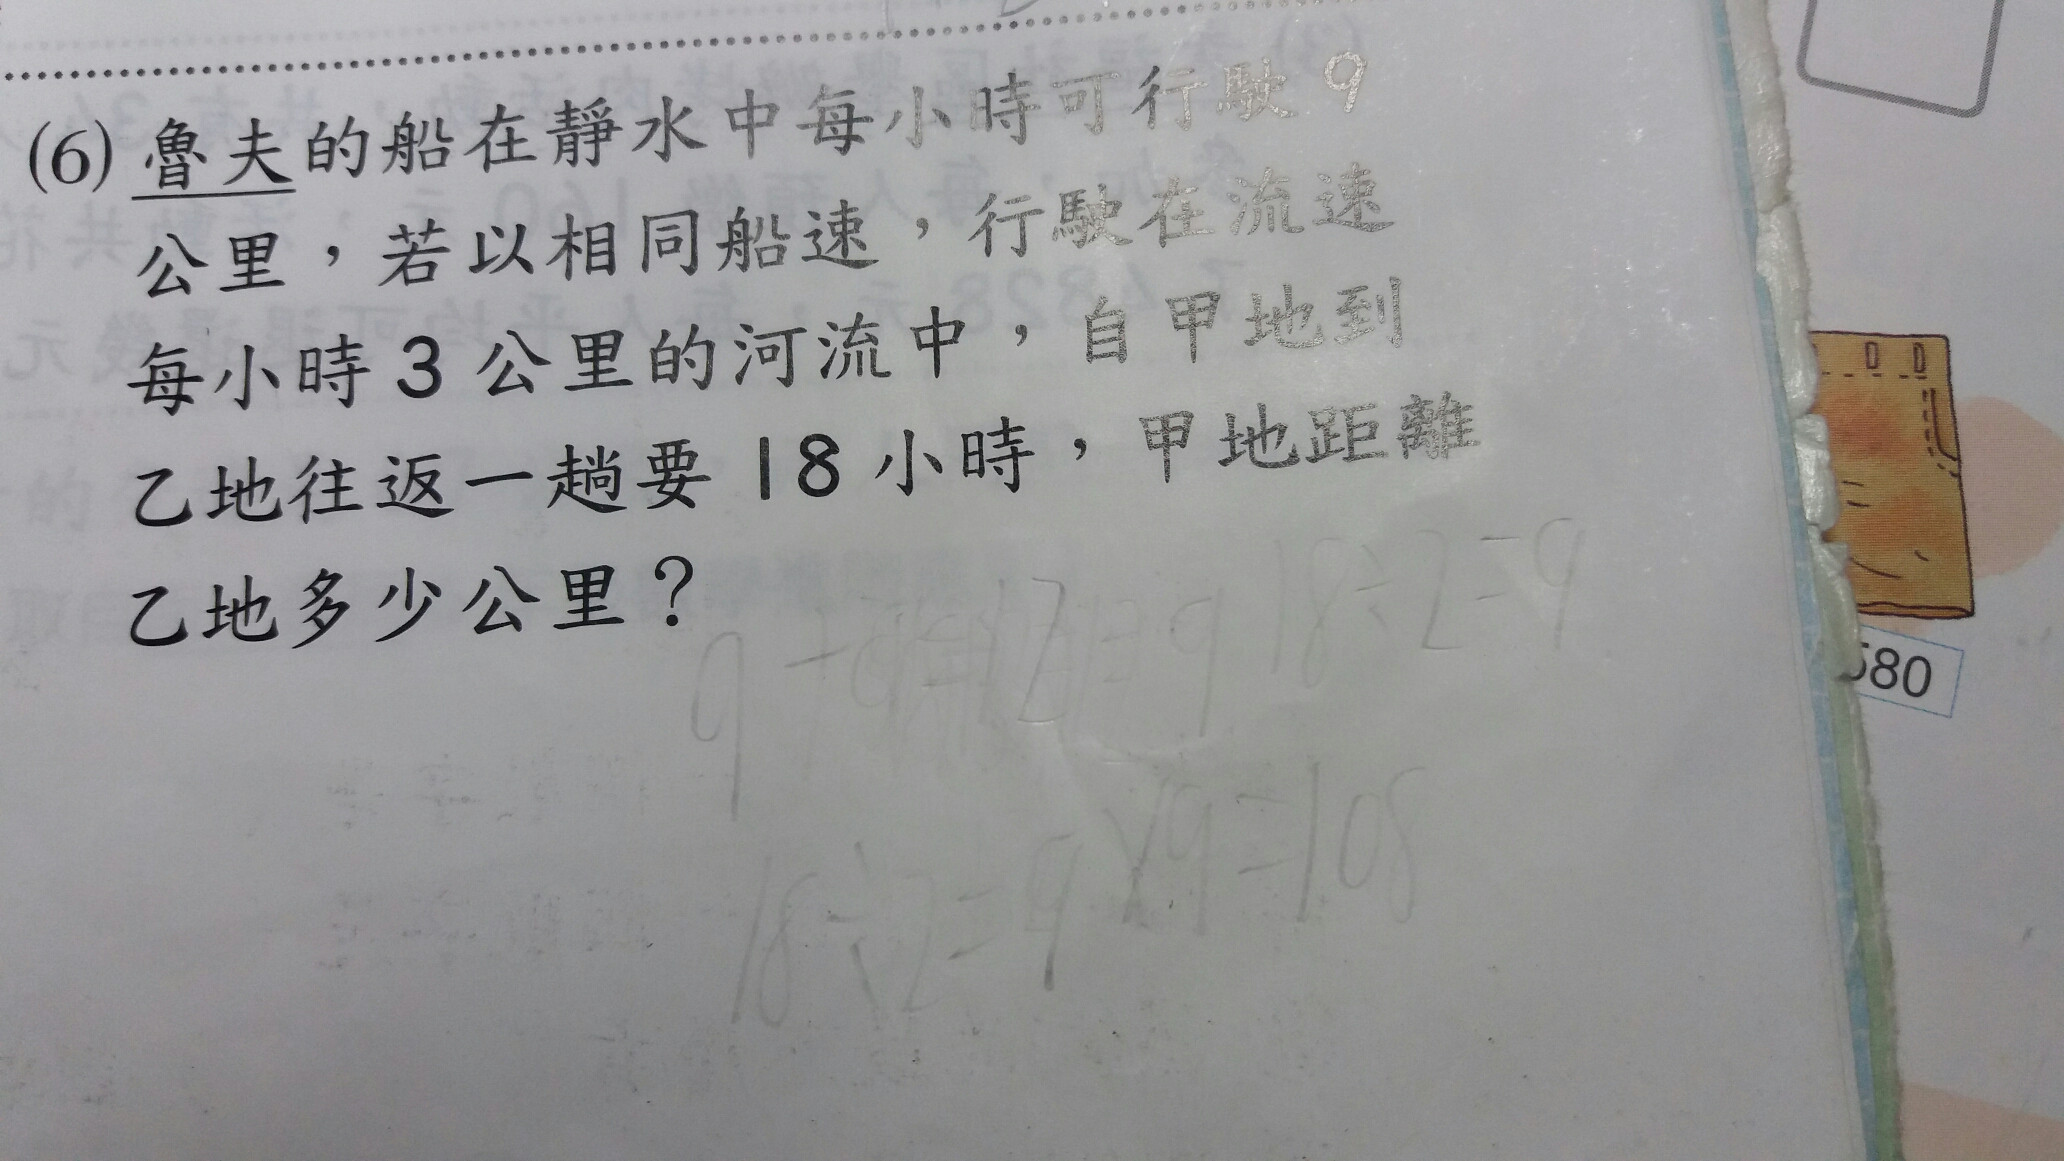 (6) 魯夫的船在靜水中每小時可行駛9
公里，若以相同船速，行駛在流速
每小時3公里的河流中，自甲地到
乙地往返一趟要18小時，甲地距離
乙地多少公里？
18÷2=9
18÷2=9
×9=108
580